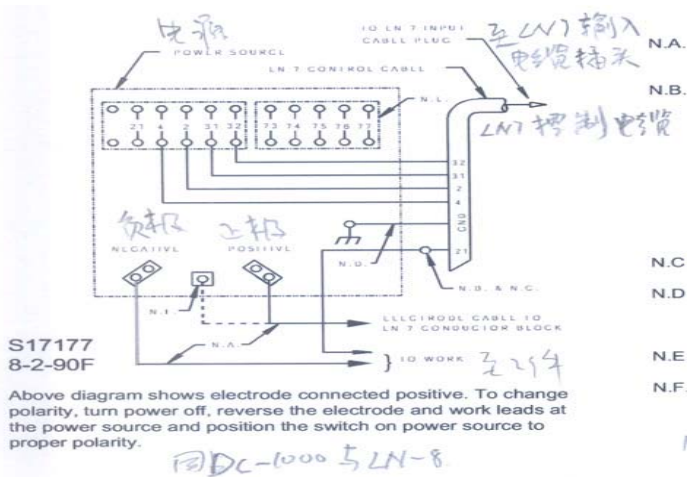 电源
POWER SOURCE
TO LN 7 INPUT
CABLE PLUG
至LN7输入
电缆插头
N.A.
LN 7 CONTROL CABLE
N.B.
LN7控制电缆
N.L.
21 4 2 31 32
73 74 75 76 77
32
31
2
4
GND
21
负极
NEGATIVE
正极
POSITIVE
N.D.
N.B. & N.C.
N.C
N.D
N.F.
N.A.
ELECTRODE CABLE TO
LN 7 CONDUCTOR BLOCK
TO WORK
至工件
S17177
8-2-90F
N.E
N.F.
Above diagram shows electrode connected positive. To change
polarity, turn power off, reverse the electrode and work leads at
the power source and position the switch on power source to
proper polarity.
同DC-1000与LN-8.